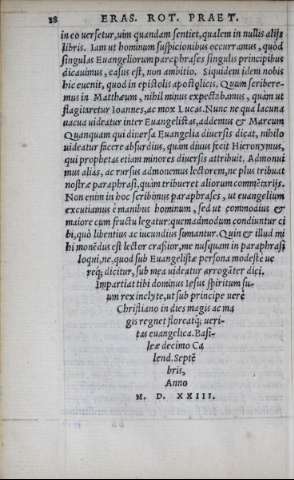 28 ERAS. ROT. PRAET.
in eo uersetur, uim quandam sentiet, qualem in nullis alijs
libris. Iam ut hominum suspicionibus occurramus, quòd
singulas Euangeliorum paraphrases singulis principibus
dicauimus, casus est, non ambitio. Siquidem idem nobis
hic euenit, quod in epistolis apostolicis. Quum scribere-
mus in Matthæum, nihil minus expectabamus, quàm ut
flagitaretur Ioannes, ac mox Lucas. Nunc ne qua lacuna
uacua uideatur inter Euangelistas, addemus & Marcum
Quanquam qui diuersa Euangelia diuersis dicat, nihilo
uideatur facere absurdius, quàm diuus fecit Hieronymus,
qui prophetas etiam minores diuersis attribuit. Admonui
mus aliàs, ac rursus admonemus lectorem, ne plus tribuat
nostræ paraphrasi, quàm tribueret aliorum commētarijs.
Non enim in hoc scribimus paraphrases, ut euangelium
excutiamus è manibus hominum, sed ut commodius &
maiore cum fructu legatur: quemadmodum condiuntur ci
bi, quò libentius ac iucundius sumantur. Quin & illud mi
hi monēdus est lector crassior, me nusquam in paraphrasi
loqui, ne quod sub Euangelistæ persona modestè ue
req; dicitur, sub mea uideatur arrogāter dici.
Impartiat tibi dominus Iesus spiritum su-
um rex inclyte, ut sub principe uerè
Christiano in dies magis ac ma
gis regnet floreatq; ueri-
tas euangelica. Basi-
leæ decimo Ca
lend. Septē
bris,
Anno
M. D. XXIII.